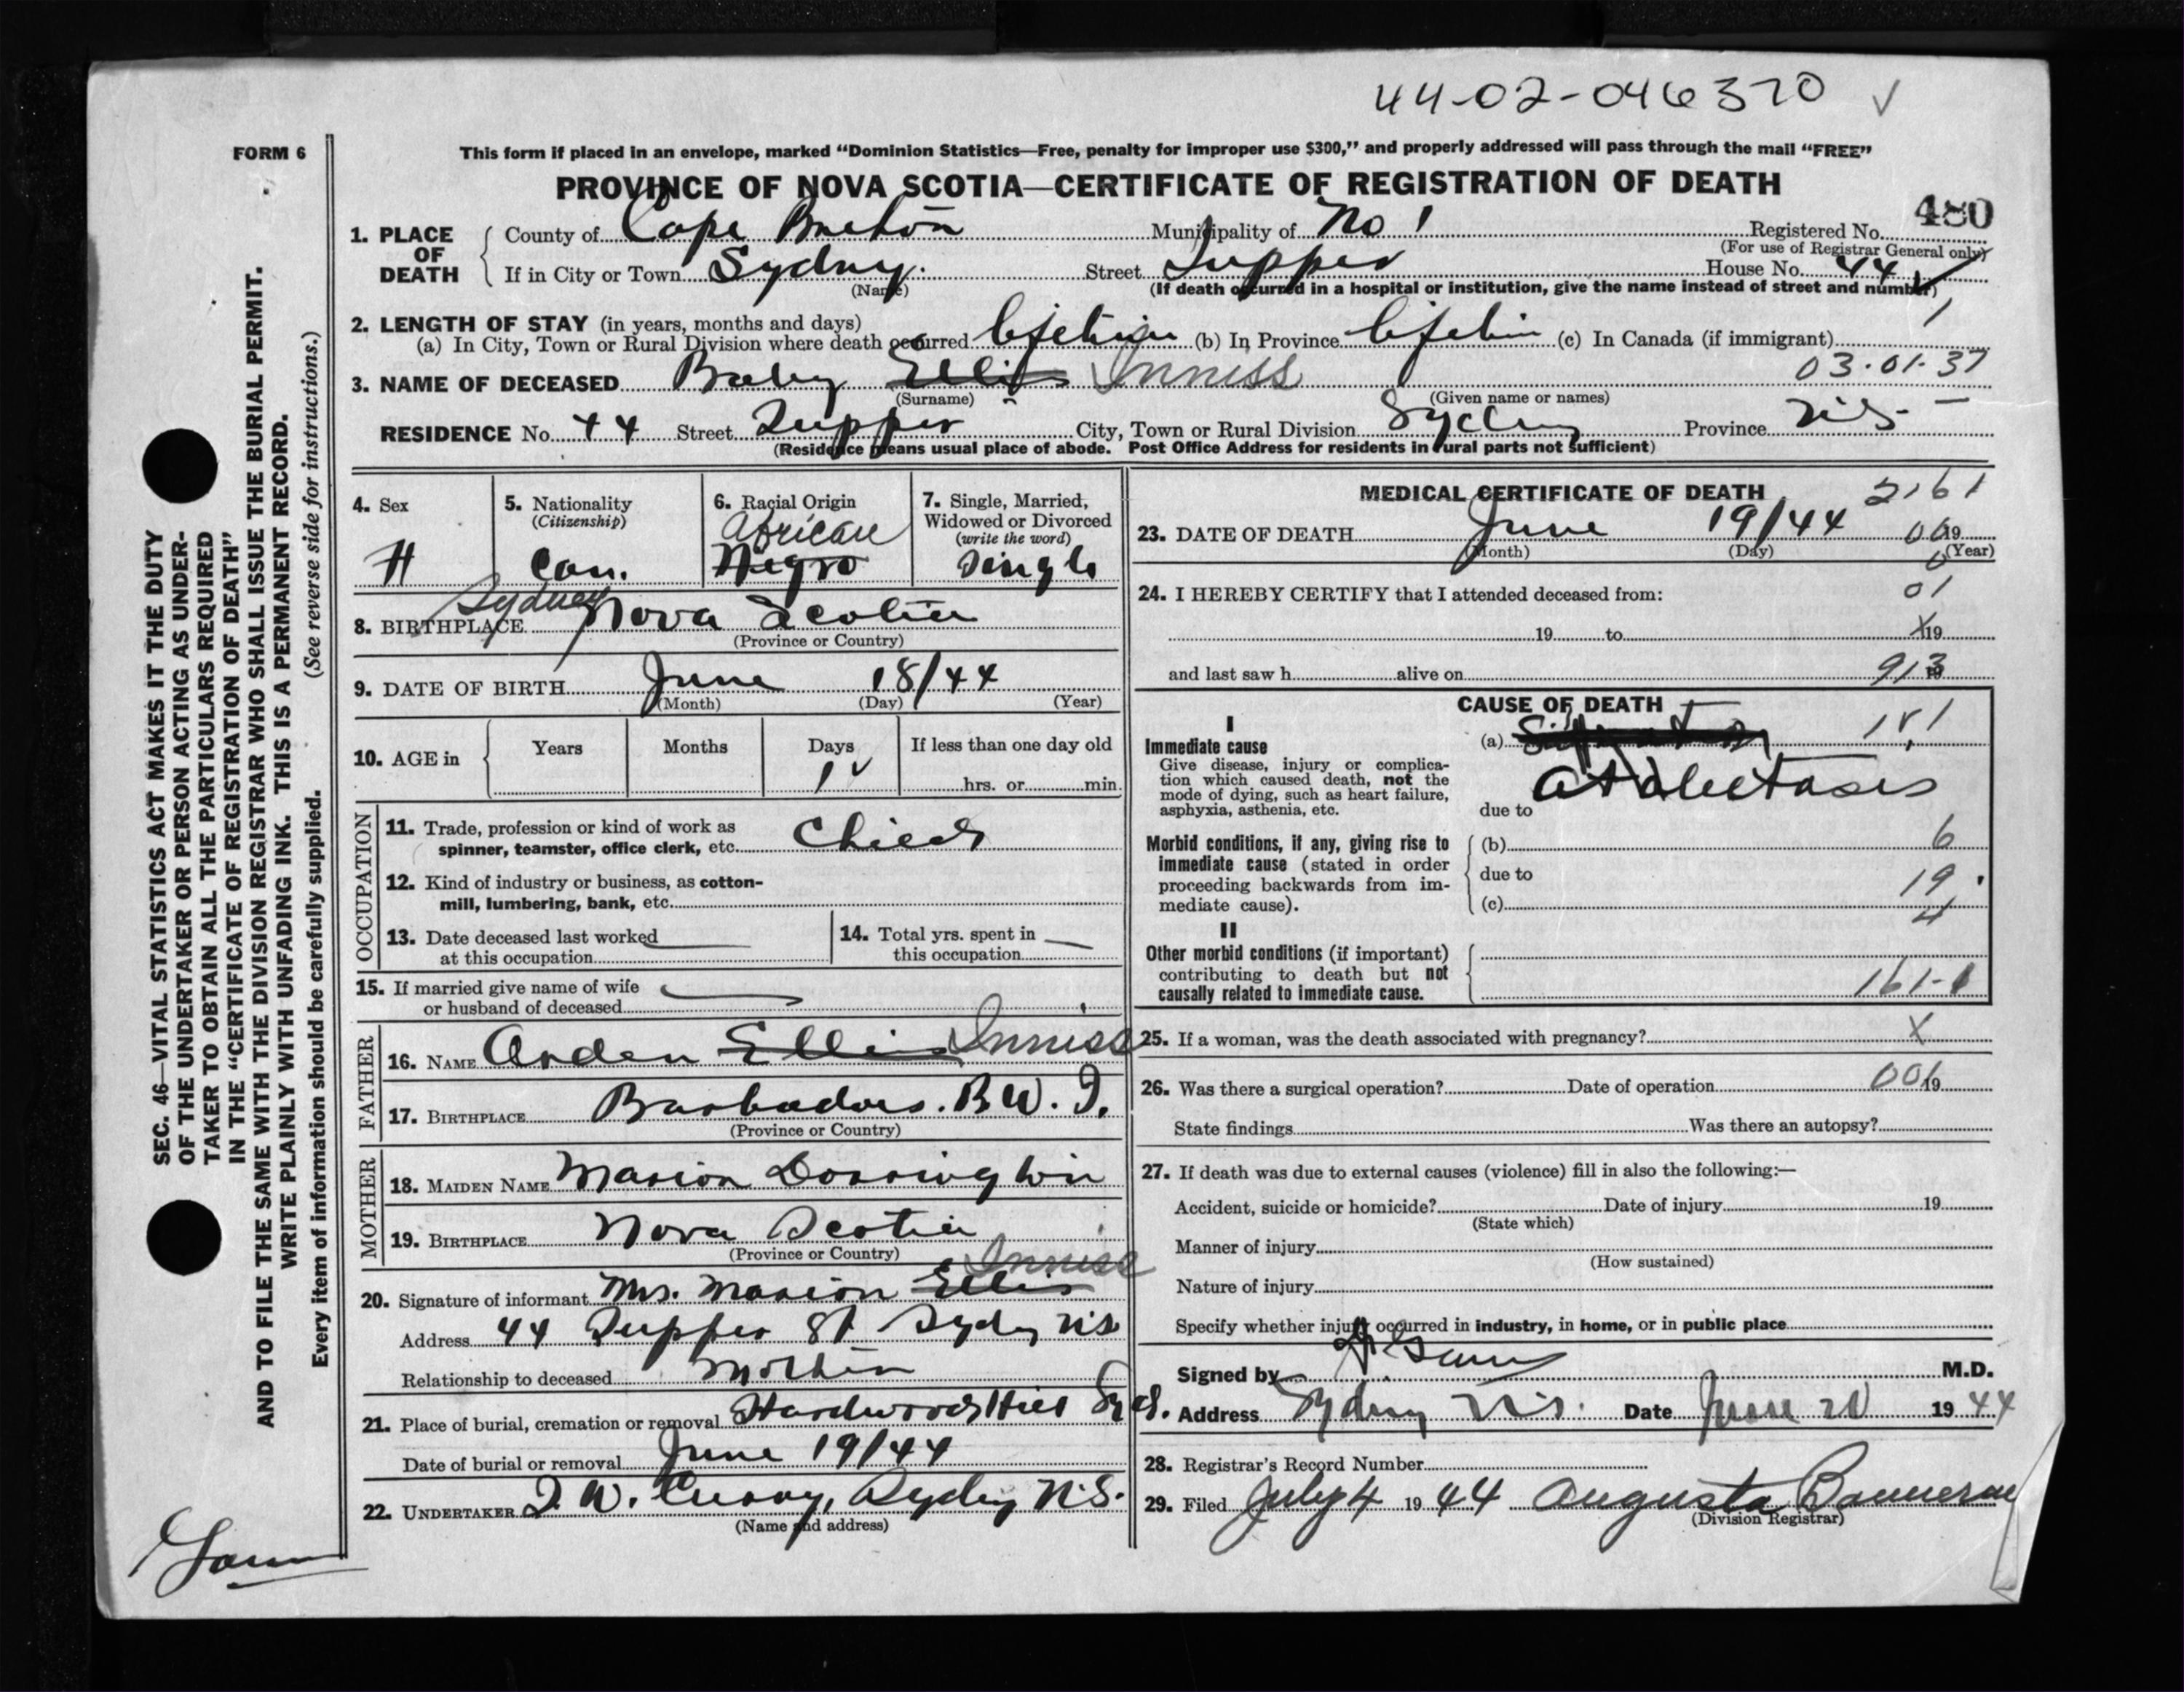 44-02-046370 ✓
FORM 6
This form if placed in an envelope, marked “Dominion Statistics—Free, penalty for improper use $300,” and properly addressed will pass through the mail “FREE”
PROVINCE OF NOVA SCOTIA—CERTIFICATE OF REGISTRATION OF DEATH
480
1. PLACE OF DEATH County of Cape Breton Municipality of No 1 Registered No.
(For use of Registrar General only)
If in City or Town Sydney. Street Tupper House No. 44
(Name) (If death occurred in a hospital or institution, give the name instead of street and number)
2. LENGTH OF STAY (in years, months and days)
(a) In City, Town or Rural Division where death occurred lifetime (b) In Province lifetim (c) In Canada (if immigrant)
3. NAME OF DECEASED Baby Ellis Inniss 03.01.37
(Surname) (Given name or names)
RESIDENCE No. 44 Street Tupper City, Town or Rural Division Sydney Province N.S.
(Residence means usual place of abode. Post Office Address for residents in rural parts not sufficient)
4. Sex 5. Nationality (Citizenship) 6. Racial Origin 7. Single, Married, Widowed or Divorced (write the word)
African
Can. Negro Single
8. BIRTHPLACE Sydney Nova Scotia
(Province or Country)
9. DATE OF BIRTH June 18/44
(Month) (Day) (Year)
10. AGE in Years Months Days If less than one day old
1 ✓ hrs. or min.
OCCUPATION
11. Trade, profession or kind of work as spinner, teamster, office clerk, etc. Child
12. Kind of industry or business, as cotton-mill, lumbering, bank, etc.
13. Date deceased last worked at this occupation
14. Total yrs. spent in this occupation
15. If married give name of wife or husband of deceased
FATHER
16. NAME Arden Ellis Inniss
17. BIRTHPLACE Barbados. B.W.I.
(Province or Country)
MOTHER
18. MAIDEN NAME Marion Dorrington
19. BIRTHPLACE Nova Scotia
(Province or Country)
20. Signature of informant Mrs. Marion Ellis Inniss
Address 44 Tupper St Sydney N.S.
Relationship to deceased Mother
21. Place of burial, cremation or removal Hardwood Hill Syd.
Date of burial or removal June 19/44
22. UNDERTAKER T. W. Curry, Sydney N.S.
(Name and address)
MEDICAL CERTIFICATE OF DEATH 2161
23. DATE OF DEATH June 19/44 19
(Month) (Day) (Year)
24. I HEREBY CERTIFY that I attended deceased from: 01
19 to X 19
and last saw h alive on 913 19
CAUSE OF DEATH
I
Immediate cause (a)
Give disease, injury or complication which caused death, not the mode of dying, such as heart failure, asphyxia, asthenia, etc.
Atelectasis
due to
Morbid conditions, if any, giving rise to immediate cause (stated in order proceeding backwards from immediate cause).
(b) 6
due to 19
(c) 4
II
Other morbid conditions (if important) contributing to death but not causally related to immediate cause. 161-1
25. If a woman, was the death associated with pregnancy? X
26. Was there a surgical operation? Date of operation 006 19
State findings Was there an autopsy?
27. If death was due to external causes (violence) fill in also the following:—
Accident, suicide or homicide? Date of injury 19
(State which)
Manner of injury
(How sustained)
Nature of injury
Specify whether injury occurred in industry, in home, or in public place
Signed by M.D.
Address Sydney N.S. Date June 20 1944
28. Registrar's Record Number
29. Filed July 4 1944 Augusta
(Division Registrar)
SEC. 46—VITAL STATISTICS ACT MAKES IT THE DUTY
OF THE UNDERTAKER OR PERSON ACTING AS UNDER-
TAKER TO OBTAIN ALL THE PARTICULARS REQUIRED
IN THE “CERTIFICATE OF REGISTRATION OF DEATH”
AND TO FILE THE SAME WITH THE DIVISION REGISTRAR WHO SHALL ISSUE THE BURIAL PERMIT.
WRITE PLAINLY WITH UNFADING INK. THIS IS A PERMANENT RECORD.
Every item of information should be carefully supplied. (See reverse side for instructions.)